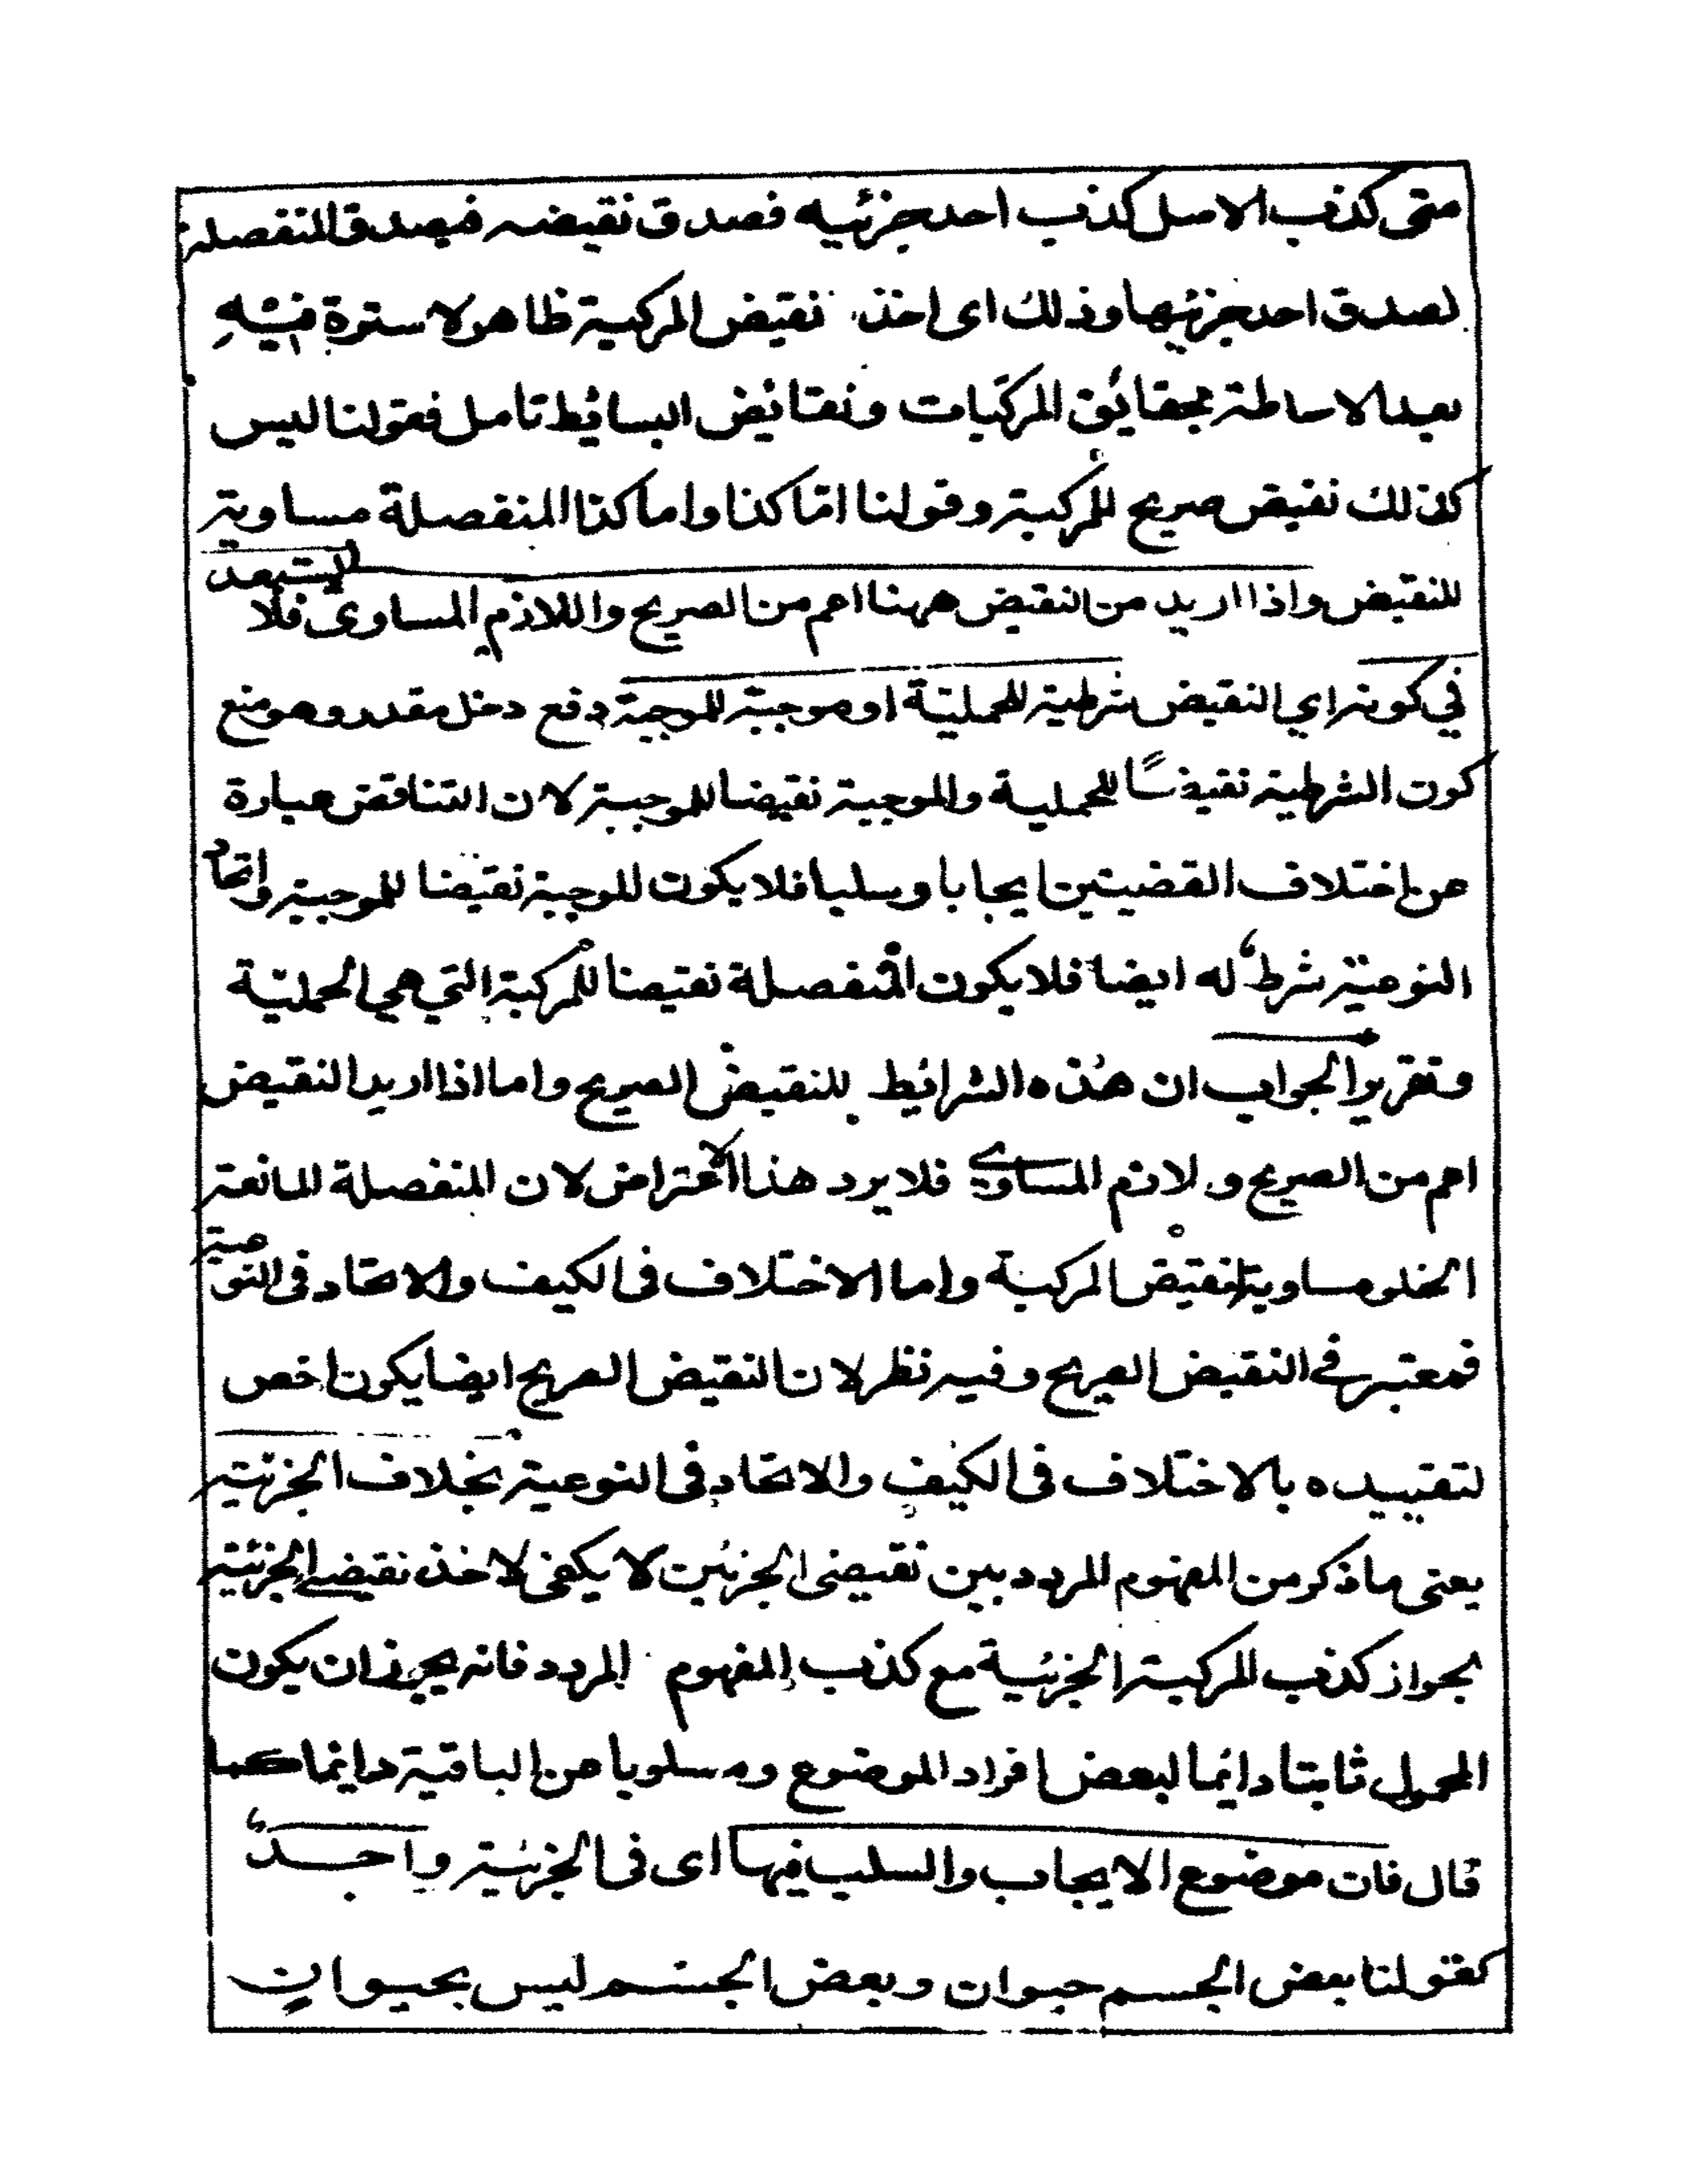 متى كذب الاصل كذب احد جزئيه فصدق نقيضه فيصدق المنفصلة
لصدق احد جزئيها وذلك اى اخذ نقيض المركبة ظاهر لا سترة فيه
بعد الاحاطة بحقائق المركبات ونقائض البسائط تامل فقولنا ليس
كذلك نقيض صريح للمركبة وقولنا اما كذا واما كذا المنفصلة مساوية
للنقيض واذا اريد من النقيض ههنا اعم من الصريح واللازم المساوى فلا يستبعد
في كونه اي النقيض شرطية للحملية او موجبة للموجبة دفع دخل مقدر وهو منع
كون الشرطية نقيضًا للحملية والموجبة نقيضا للموجبة لان التناقض عبارة
عن اختلاف القضيتين ايجابا وسلبا فلا يكون الموجبة نقيضا للموجبة واتحاد
النوعية شرط له ايضا فلا يكون المنفصلة نقيضا للمركبة التي هي الحملية
وتقرير الجواب ان هذه الشرائط للنقيض الصريح واما اذا اريد النقيض
اعم من الصريح و لازم المساوي فلا يرد هذا الاعتراض لان المنفصلة المانعة
الخلو مساوية لنقيض المركبة واما الاختلاف فى الكيف والاتحاد فى النوعية
فمعتبر في النقيض الصريح وفيه نظر لان النقيض الصريح ايضا يكون اخص
لتقييده بالاختلاف فى الكيف والاتحاد فى النوعية بخلاف الجزئية
يعنى ما ذكر من المفهوم المردد بين نقيضى الجزئين لا يكفى لاخذ نقيضے الجزئية
بجواز كذب المركبة الجزئية مع كذب المفهوم المردد فانه يجوز ان يكون
المحمول ثابتا دائما لبعض افراد الموضوع ومسلوبا عن الباقية دائما كما
قال فان موضوع الايجاب والسلب فيها اى فى الجزئية واحد
كقولنا بعض الجسم حيوان وبعض الجسم ليس بحيوان